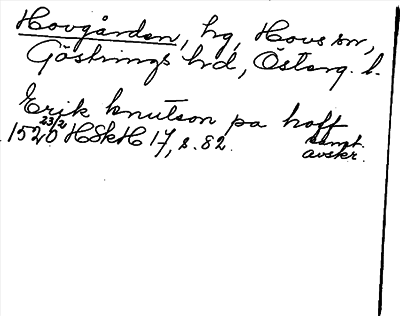 Hovgården, hg, Hovs sn,
Göstrings hd, Österg. l.
Erik knutson pa hoff
1520 23/2 HSkH 17, s. 82. samt. avskr.